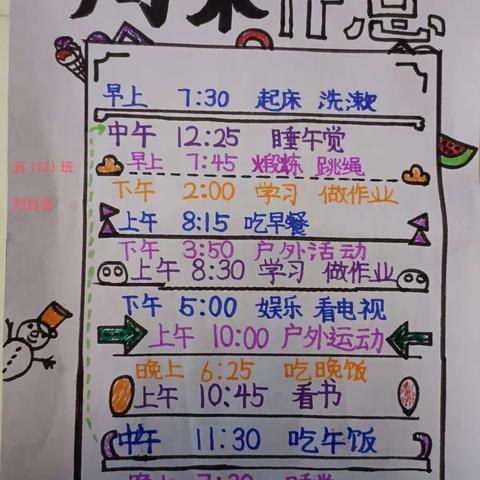 周末作息
早上 7:30 起床 洗漱
中午 12:25 睡午觉
早上 7:45 煅炼 跳绳
五（12）班
下午 2:00 学习 做作业
刘自强
上午 8:15 吃早餐
下午 3:50 户外活动
上午 8:30 学习 做作业
下午 5:00 娱乐 看电视
上午 10:00 户外运动
晚上 6:25 吃晚饭
上午 10:45 看书
中午 11:30 吃午饭